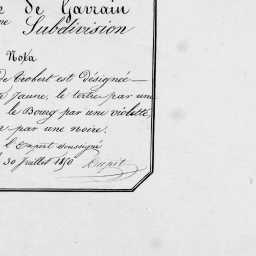 de Gavrain
me Subdivision
Nota
de Trobert est désignée
Jaune, le tertre par une
le Bourg par une violette,
par une noire.
L'Expert soussigné
30 Juillet 18